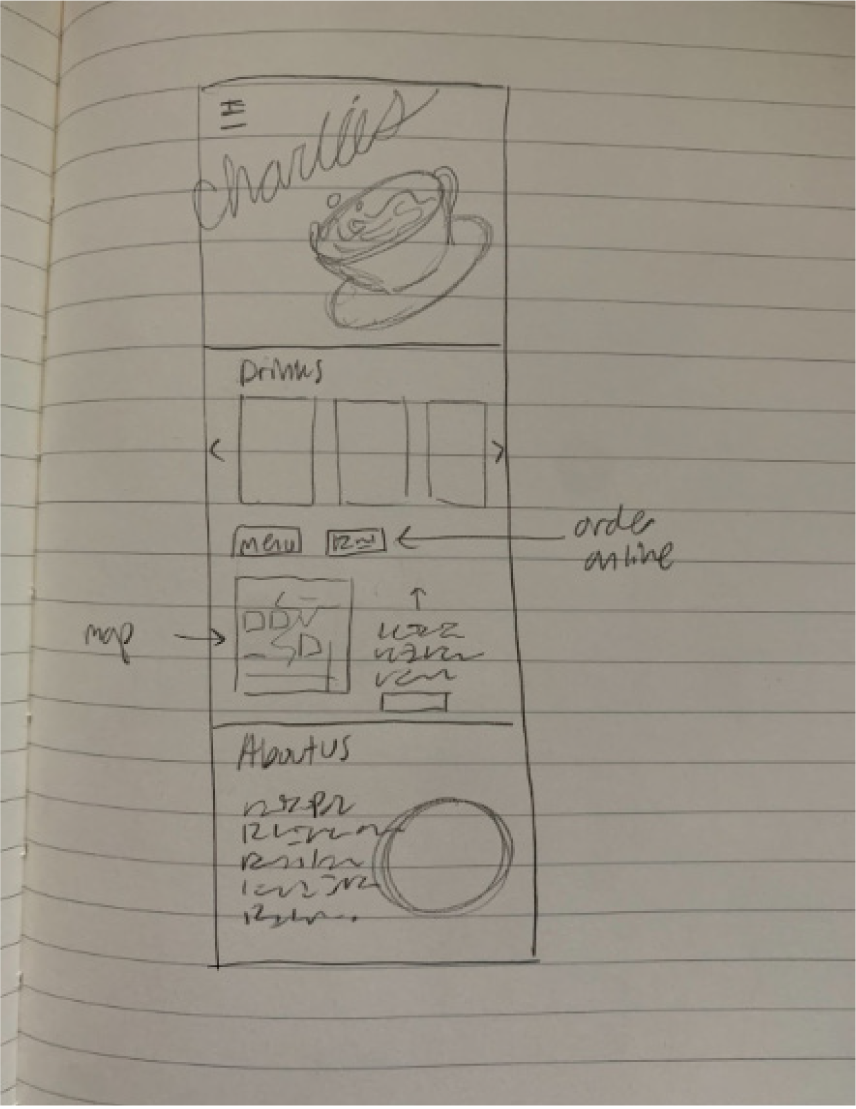 charlies
Drinks
menu
order
online
map
About us